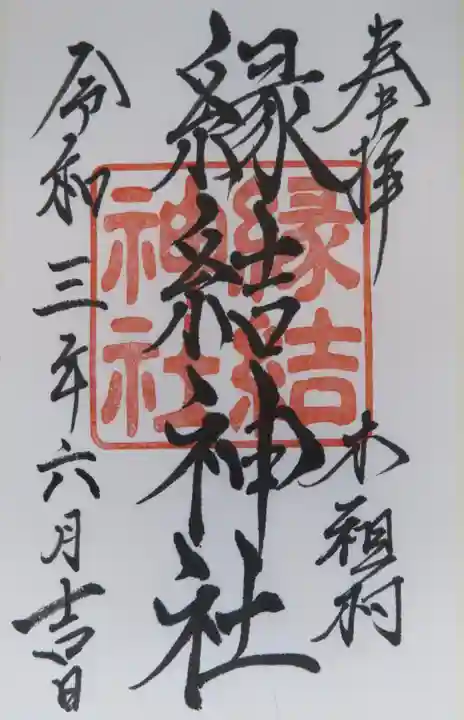 奉拝 木祖村
縁結神社
令和三年六月吉日
縁結
神社